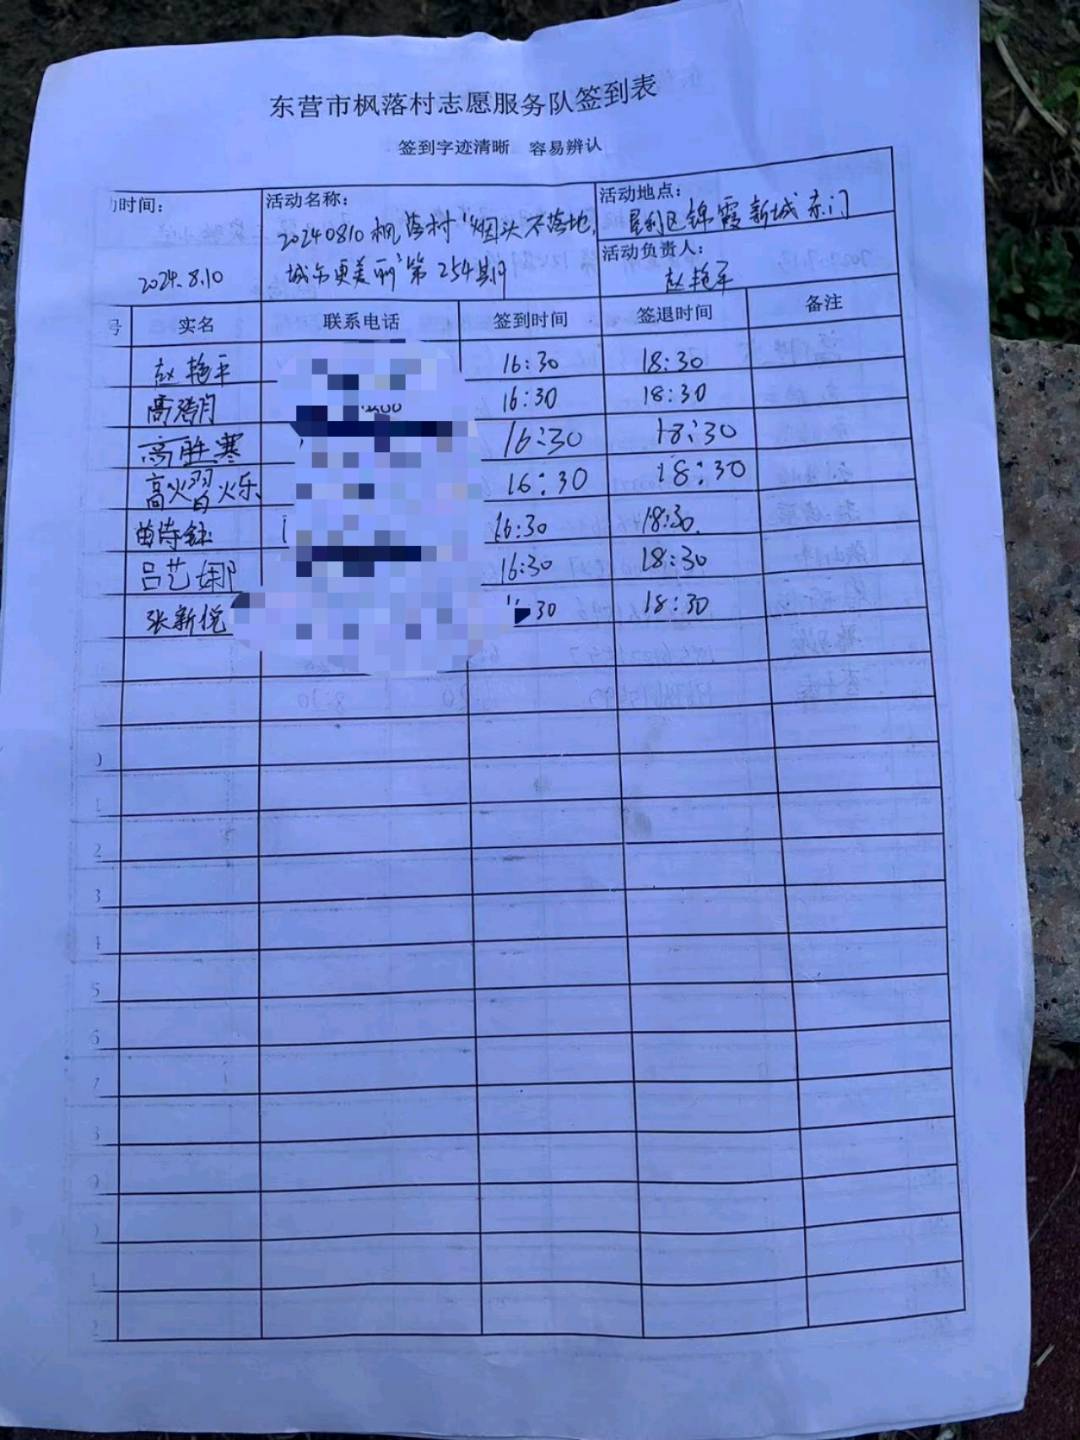 东营市枫落村志愿服务队签到表
签到字迹清晰 容易辨认
时间： 活动名称： 活动地点：
20240810枫落村“烟头不落地， 垦利区锦霞新城东门
2024.8.10 城市更美丽”第254期 活动负责人：
赵艳平
号 实名 联系电话 签到时间 签退时间 备注
赵艳平 16:30 18:30
高 16:30 18:30
高胜寒 16:30 18:30
高熠烁 16:30 18:30
曲诗 16:30 18:30
吕艺娜 16:30 18:30
张新悦 30 18:30